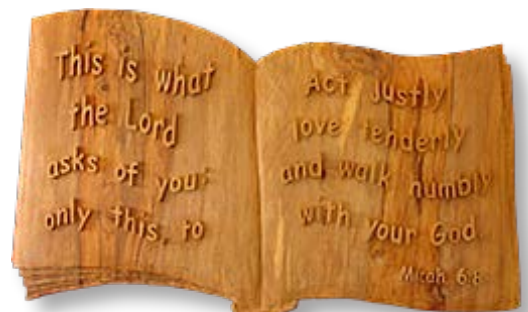 This is what
the Lord
asks of you:
only this, to
Act Justly
love tenderly
and walk humbly
with your God.
Micah. 6:8